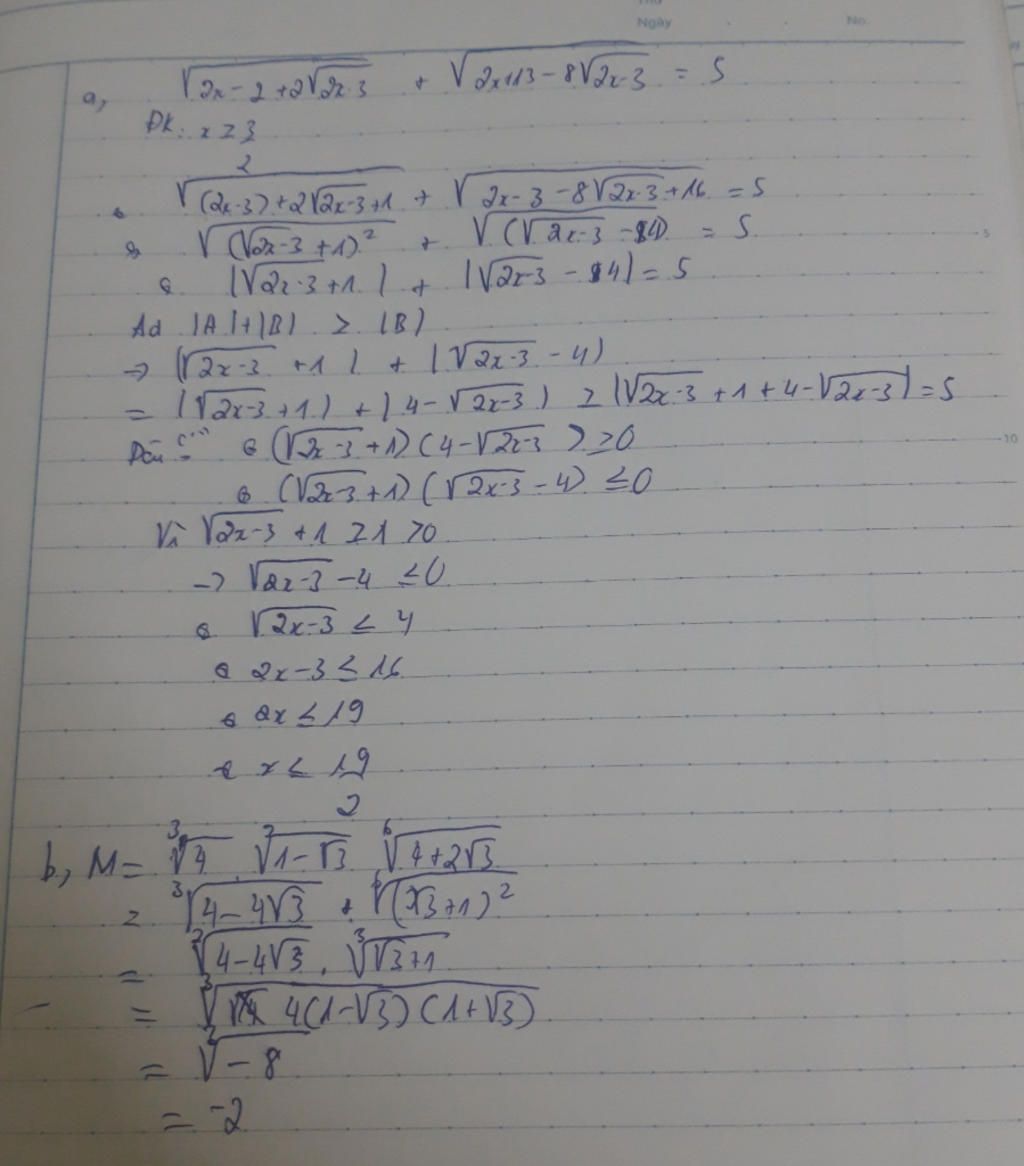 Thứ
Ngày . . No.
a, √(2x-2+2√(2x-3)) + √(2x+13-8√(2x-3)) = 5
ĐK: x ≥ 3/2
⇔ √((2x-3)+2√(2x-3)+1) + √(2x-3-8√(2x-3)+16) = 5
⇔ √((√(2x-3)+1)²) + √((√(2x-3)-4)) = 5
⇔ |√(2x-3)+1| + |√(2x-3)-4| = 5
Ad |A|+|B| ≥ |B|
→ |√(2x-3)+1| + |√(2x-3)-4|
= |√(2x-3)+1| + |4-√(2x-3)| ≥ |√(2x-3)+1+4-√(2x-3)| = 5
5
Dấu "=" ⇔ (√(2x-3)+1)(4-√(2x-3)) ≥ 0
10
⇔ (√(2x-3)+1)(√(2x-3)-4) ≤ 0
Vì √(2x-3)+1 ≥ 1 > 0
→ √(2x-3)-4 ≤ 0
⇔ √(2x-3) ≤ 4
⇔ 2x-3 ≤ 16
⇔ 2x ≤ 19
⇔ x ≤ 19/2
b, M = ∛4 . ∛(1-√3) ⁶√(4+2√3)
= ∛(4-4√3) . ⁶√((√3+1)²)
= ∛(4-4√3) . ∛(√3+1)
= ∛(4(1-√3)(1+√3))
= ∛-8
= -2